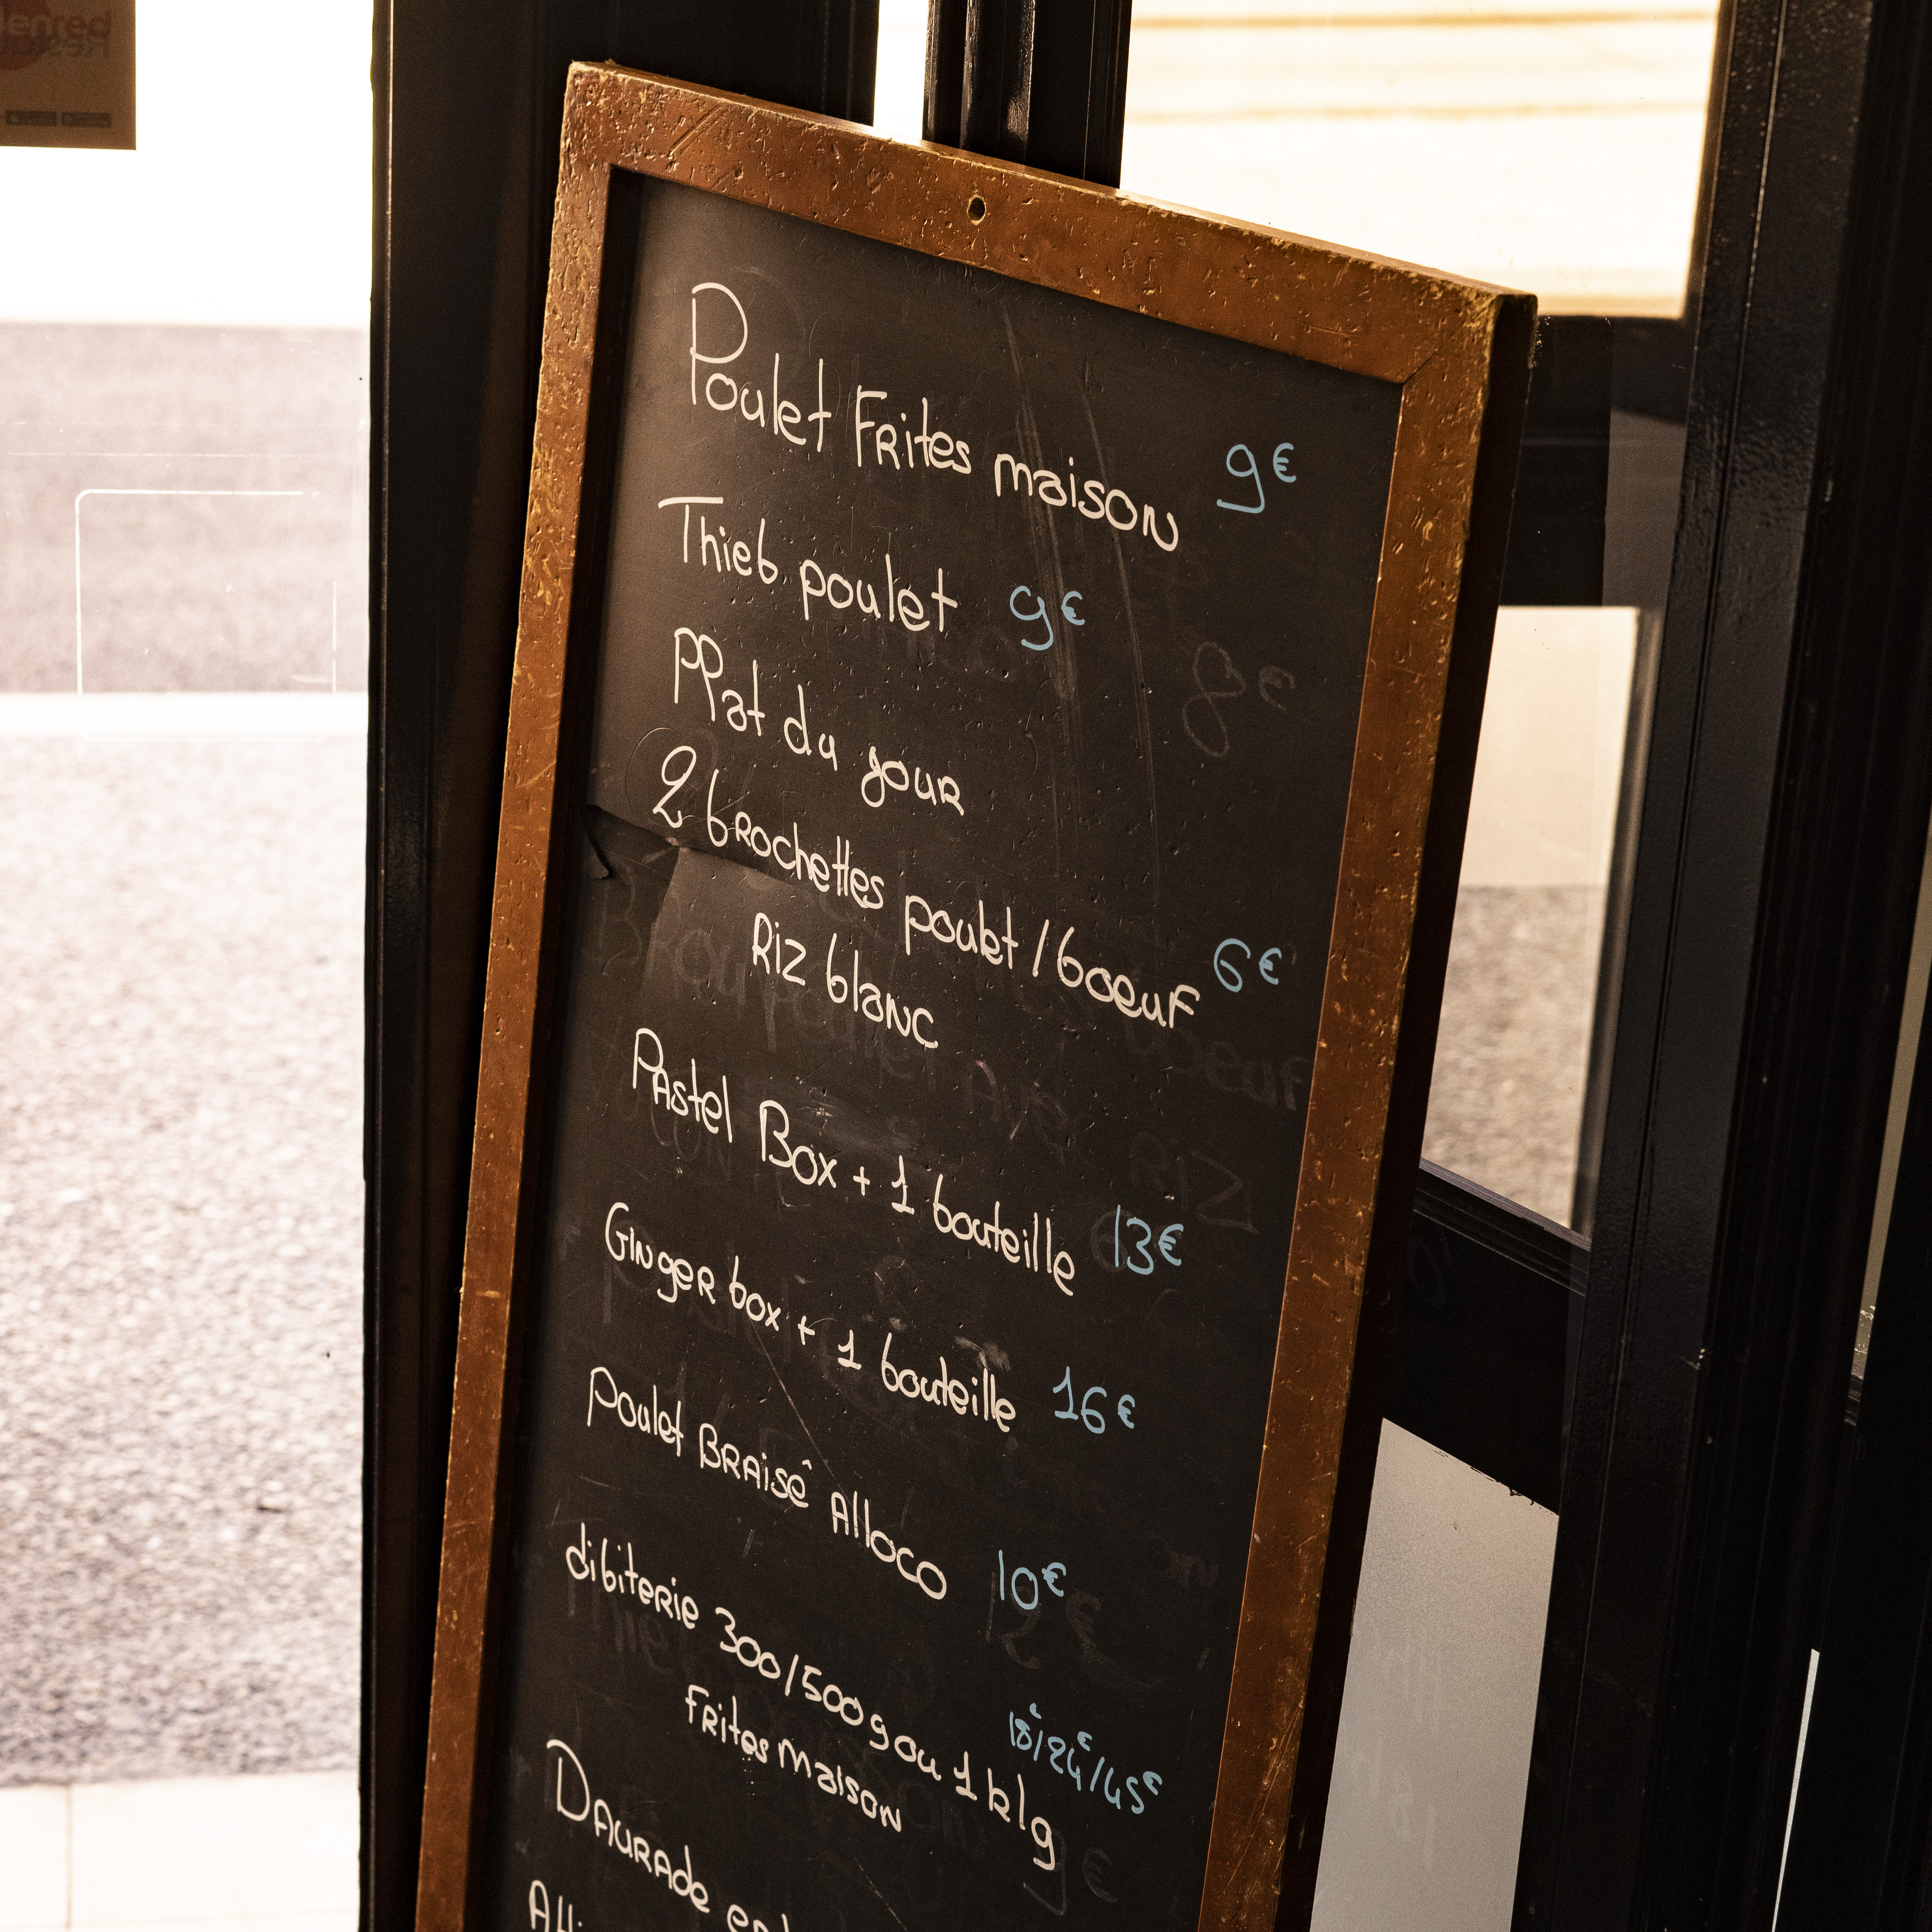 Poulet Frites maison 9€
Thieb poulet 9€
Plat du jour
2 brochettes poulet / boeuf 6€
Riz blanc
Pastel Box + 1 bouteille 13€
Ginger box + 1 bouteille 16€
Poulet Braisê Alloco 10€
dibiterie 300/500g ou 1 klg 18€/24€/45€
Frites maison
Daurade